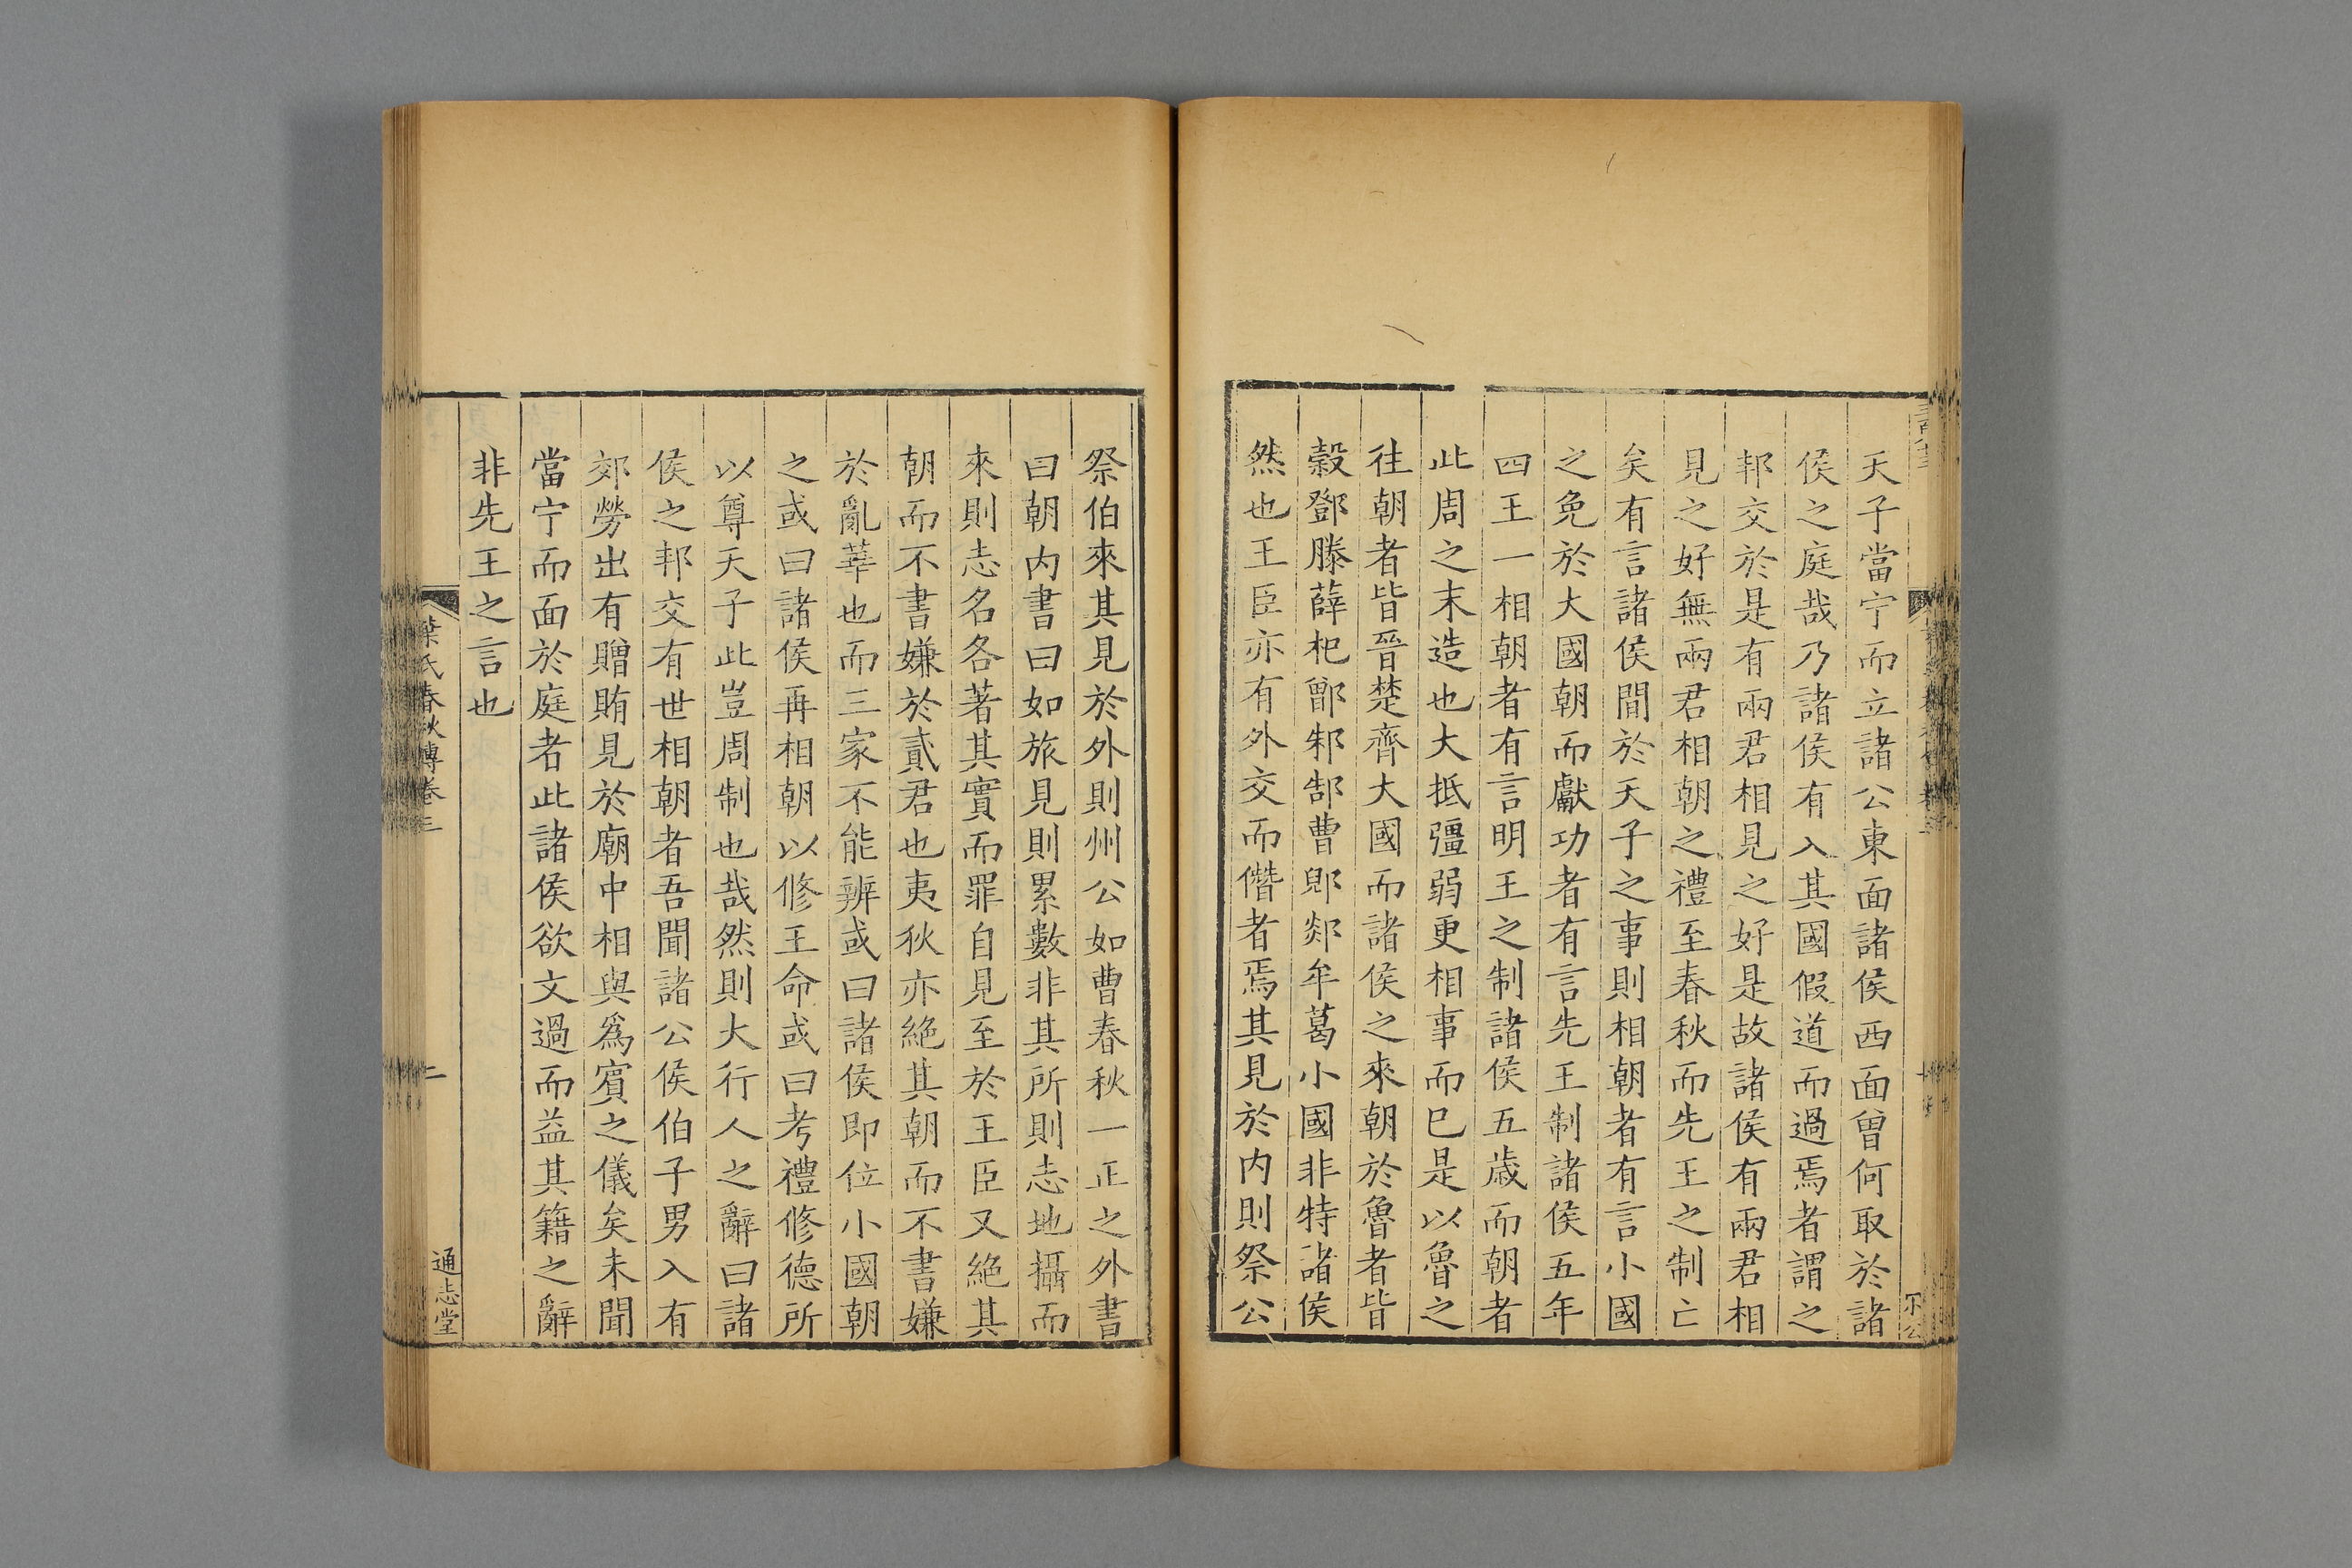 天子當宁而立諸公東面諸侯西面曾何取於諸
侯之庭哉乃諸侯有入其國假道而過焉者謂之
邦交於是有兩君相見之好是故諸侯有兩君相
見之好無兩君相朝之禮至春秋而先王之制亡
矣有言諸侯間於天子之事則相朝者有言小國
之免於大國朝而獻功者有言先王制諸侯五年
四王一相朝者有言明王之制諸侯五歲而朝者
此周之末造也大抵彊弱更相事而已是以魯之
往朝者皆晉楚齊大國而諸侯之來朝於魯者皆
穀鄧滕薛杞鄫邾郜曹郳郯牟葛小國非特諸侯
然也王臣亦有外交而僭者焉其見於内則祭公
祭伯來其見於外則州公如曹春秋一正之外書
曰朝内書曰如旅見則累數非其所則志地攝而
來則志名各著其實而罪自見至於王臣又絕其
朝而不書嫌於貳君也夷狄亦絕其朝而不書嫌
於亂華也而三家不能辨或曰諸侯即位小國朝
之或曰諸侯再相朝以修王命或曰考禮修德所
以尊天子此豈周制也哉然則大行人之辭曰諸
侯之邦交有世相朝者吾聞諸公侯伯子男入有
郊勞出有贈賄見於廟中相與爲賓之儀矣未聞
當宁而面於庭者此諸侯欲文過而益其籍之辭
非先王之言也
葉氏春秋傳卷三
二
通志堂